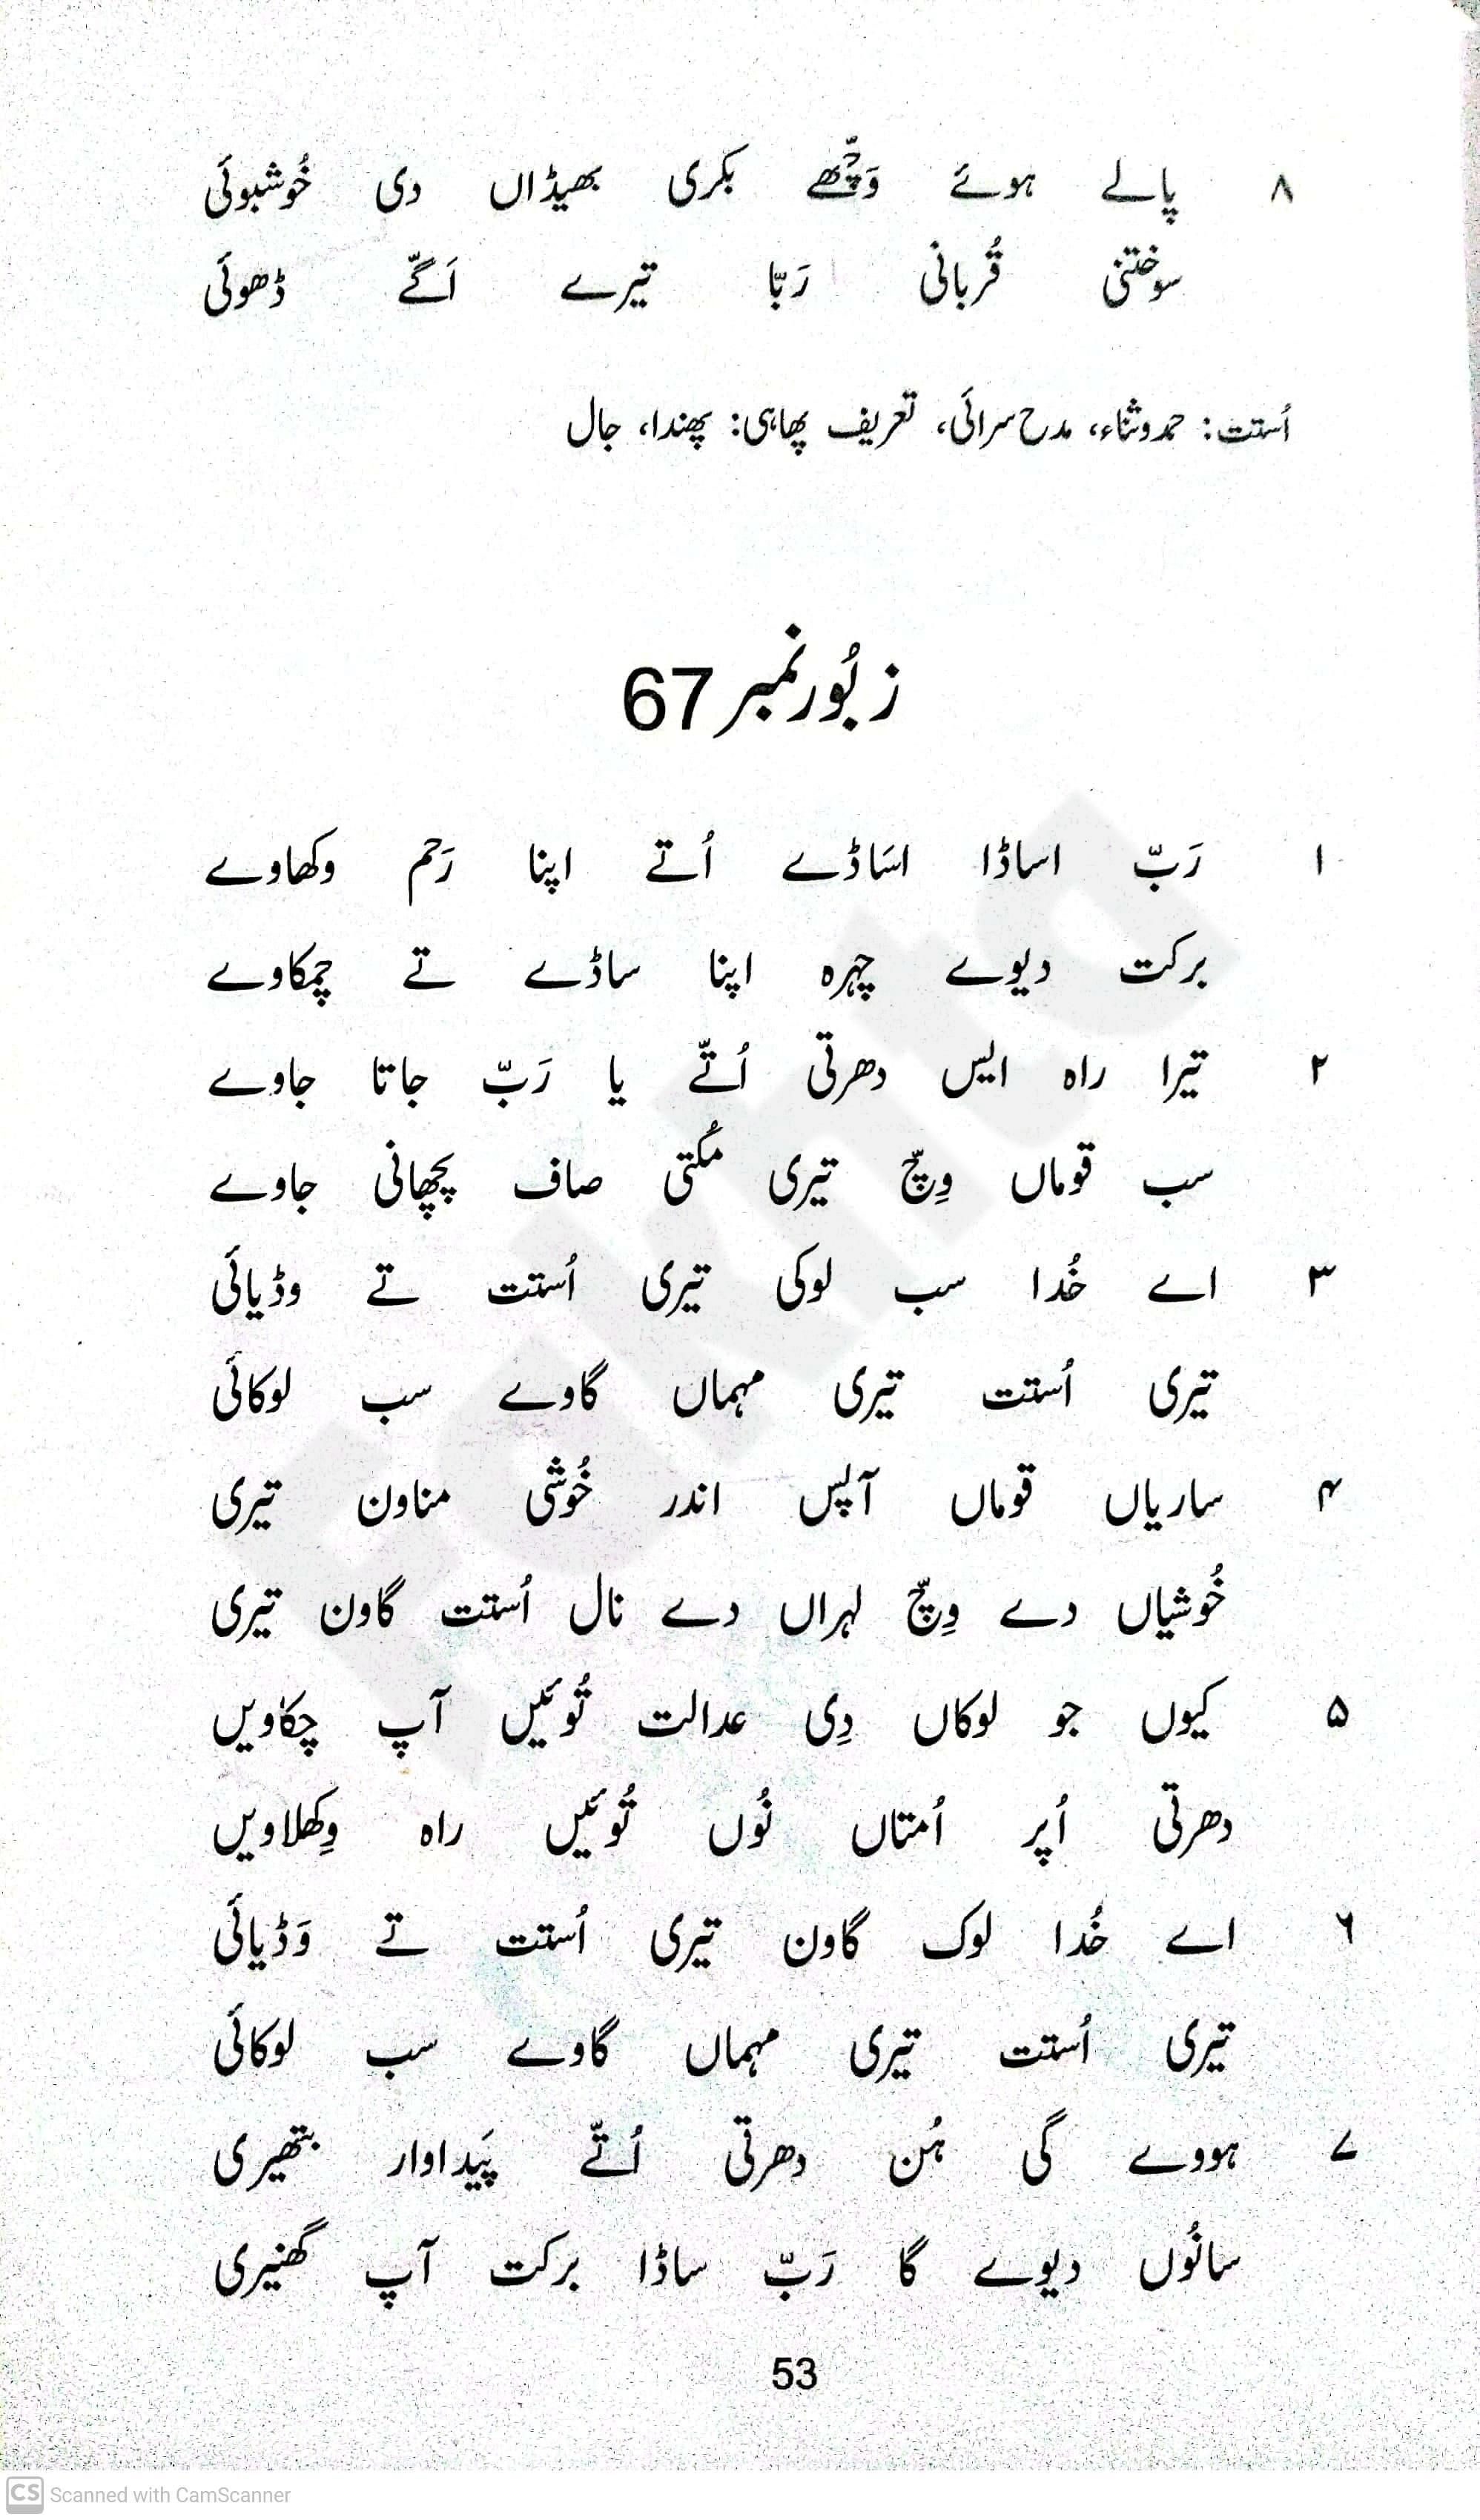 ۸ پالے ہوئے وَچّھے بکری بھیڈاں دی خُوشبوئی
سوختنی قُربانی رَبّا تیرے اَگّے ڈھوئی
اُستت: حمدوثناء، مدح سرائی، تعریف پھاہی: پھندا، جال
زبُور نمبر 67
۱ رَبّ اساڈا اسَاڈے اُتے اپنا رَحم وکھاوے
برکت دیوے چہرہ اپنا ساڈے تے چمکاوے
۲ تیرا راہ ایس دھرتی اُتّے یا رَبّ جاتا جاوے
سب قوماں وِچّ تیری مُکتی صاف پچھانی جاوے
۳ اے خُدا سب لوکی تیری اُستت تے وڈیائی
تیری اُستت تیری مہماں گاوے سب لوکائی
۴ ساریاں قوماں آپس اندر خُوشی مناون تیری
خُوشیاں دے وِچّ لہراں دے نال اُستت گاون تیری
۵ کیوں جو لوکاں دِی عدالت تُوئیں آپ چکاویں
دھرتی اُپر اُمتاں نُوں تُوئیں راہ وِکھلاویں
۶ اے خُدا لوک گاون تیری اُستت تے وَڈیائی
تیری اُستت تیری مہماں گاوے سب لوکائی
۷ ہووے گی ہُن دھرتی اُتّے پَیداوار بتھیری
سانُوں دیوے گا رَبّ ساڈا برکت آپ گھنیری
53
CS Scanned with CamScanner